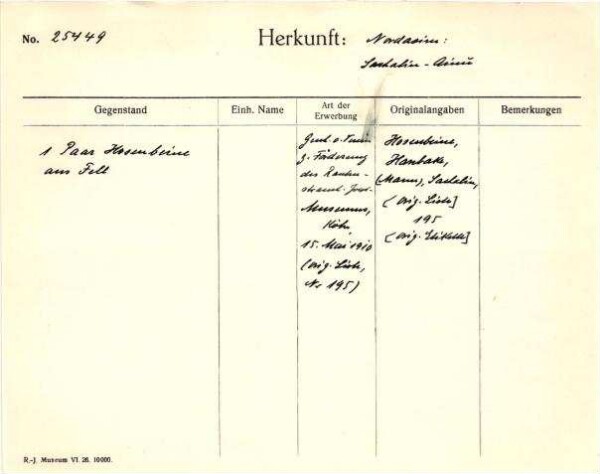 No. 25449
Herkunft: Nordasien:
Sachalin-Ainu
Gegenstand
Einh. Name
Art der Erwerbung
Originalangaben
Bemerkungen
1 Paar Hosenbeine
aus Fell
Gesch. v. Verein
z. Förderung
des Rauten-
strauch-Joest-
Museums,
Köln,
15. Mai 1910
(orig. Liste,
No 195)
Hosenbeine,
Hanbake,
(Mann), Sachalin,
(orig. Liste]
195
(orig. Etikette]
R.-J. Museum VI. 26. 10000.